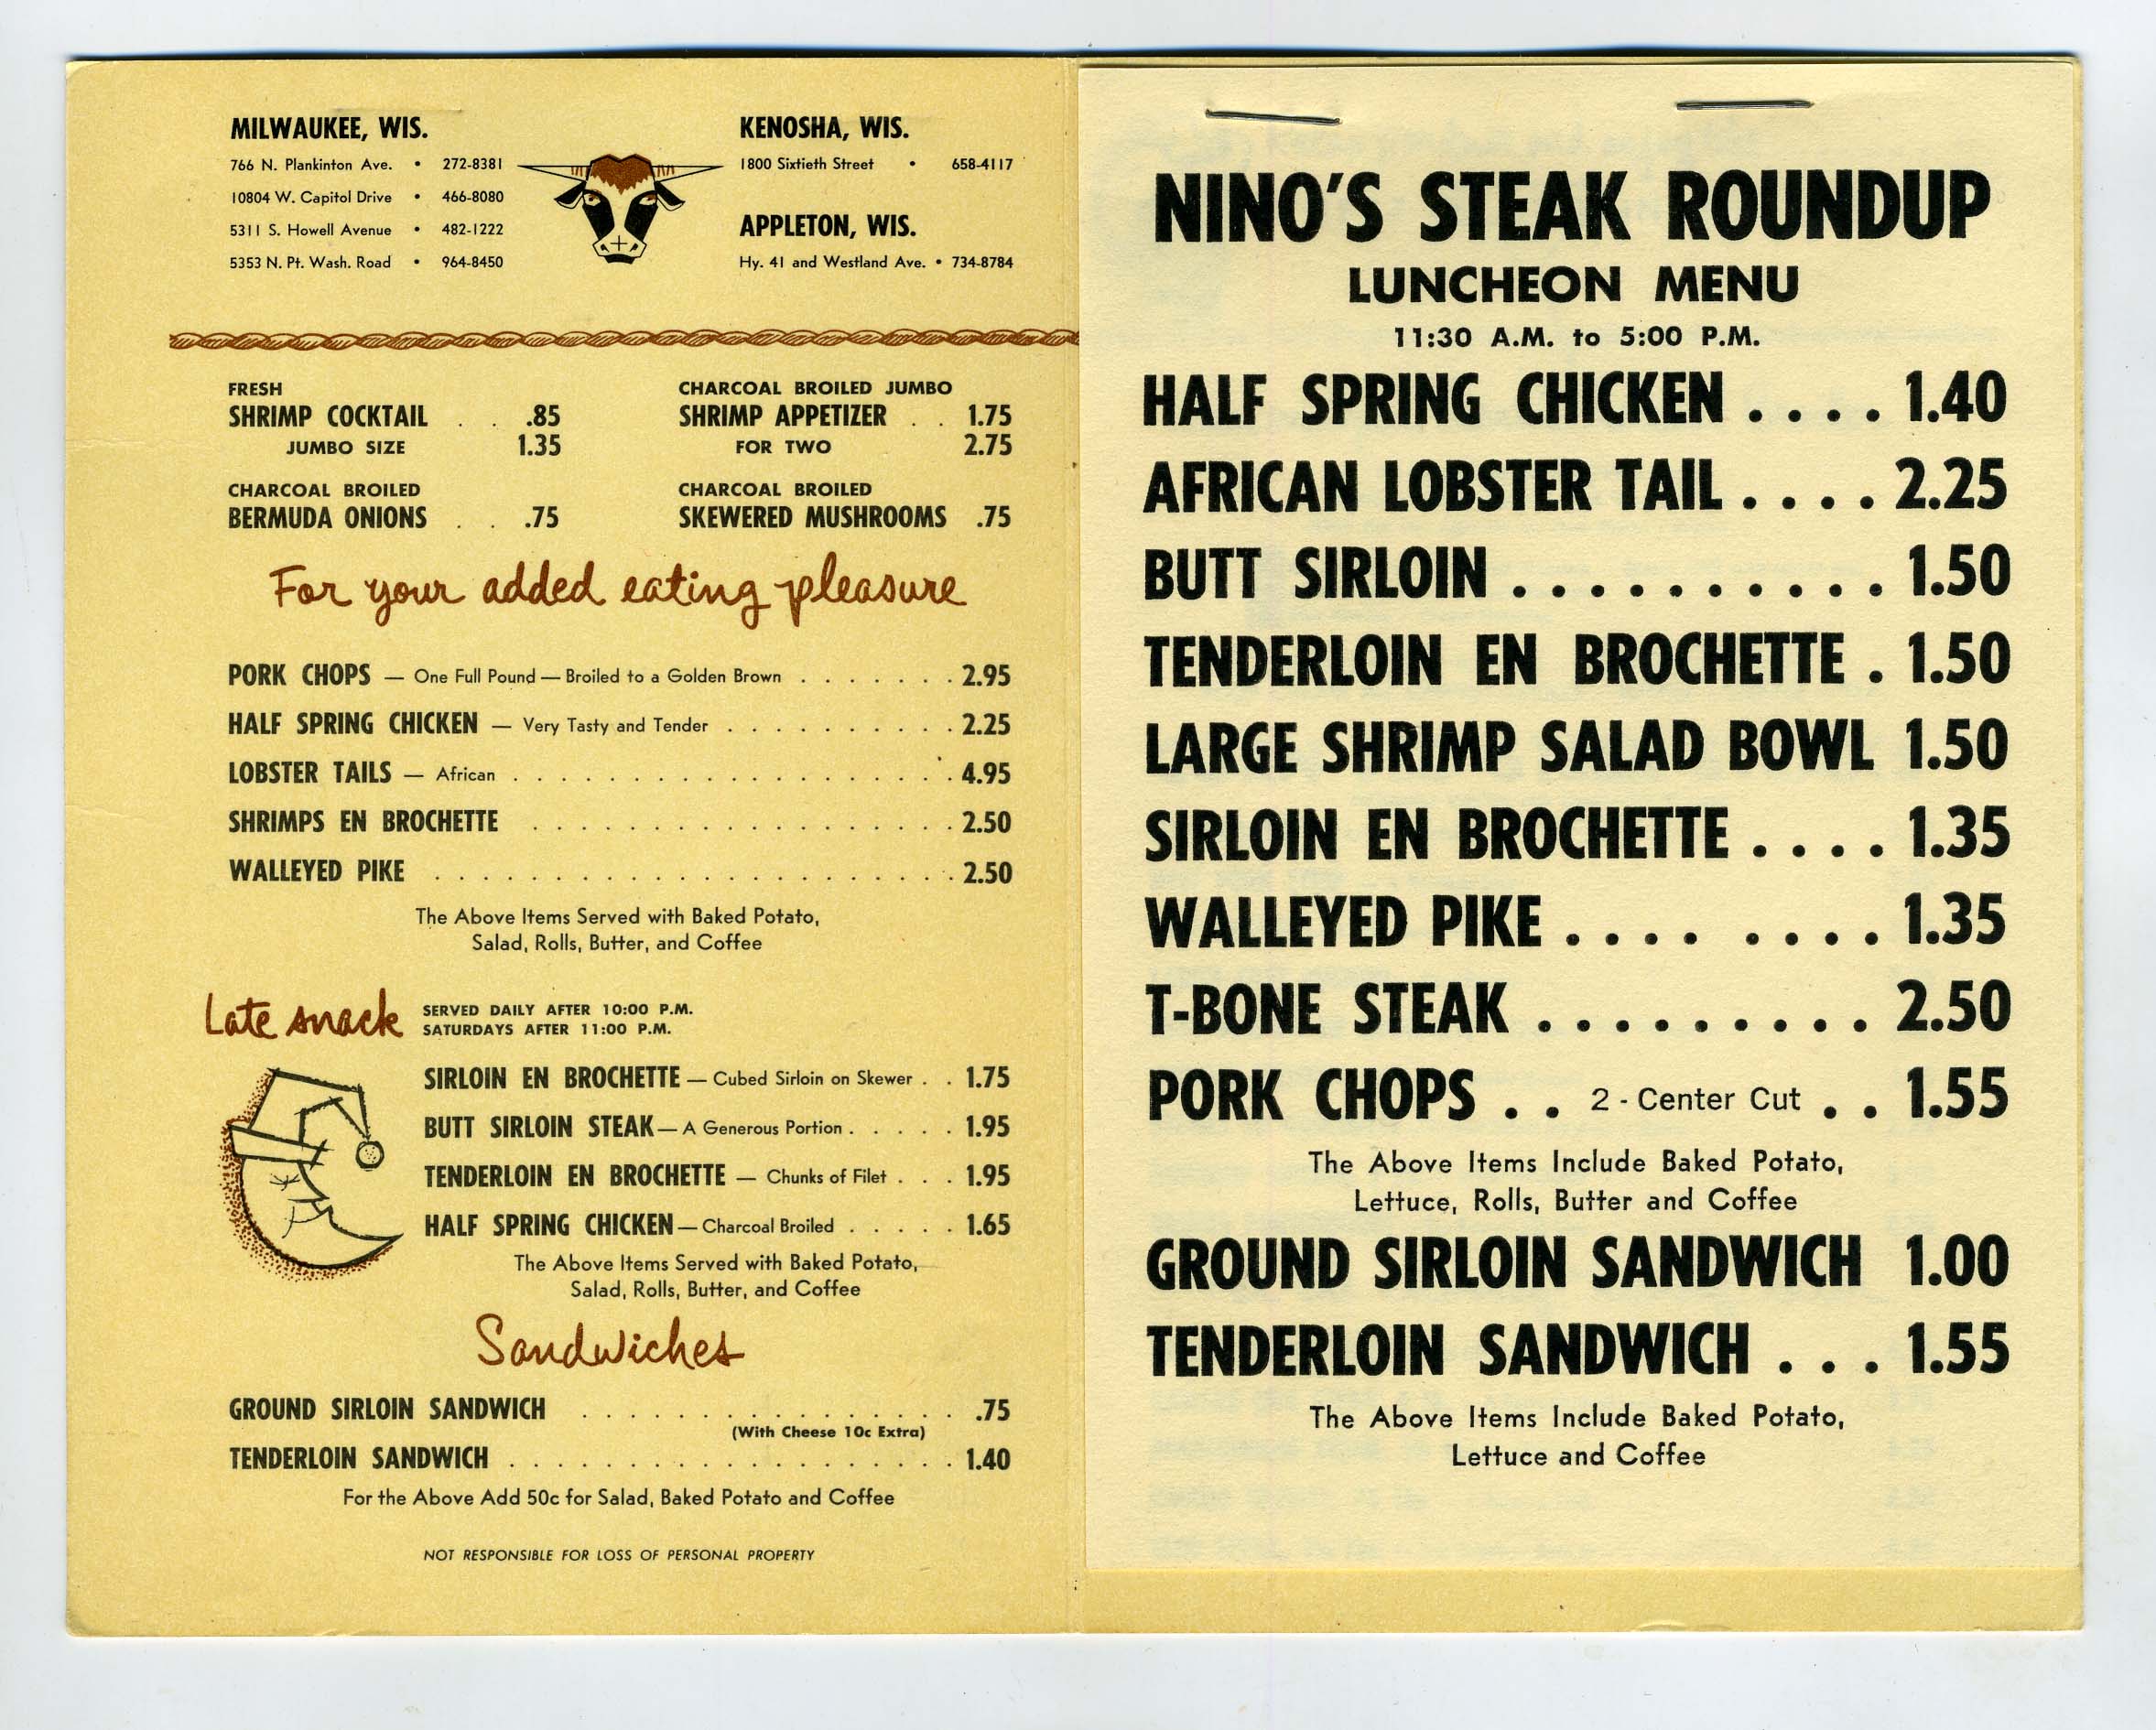 MILWAUKEE, WIS.
766 N. Plankinton Ave. • 272-8381
10804 W. Capitol Drive • 466-8080
5311 S. Howell Avenue • 482-1222
5353 N. Pt. Wash. Road • 964-8450
KENOSHA, WIS.
1800 Sixtieth Street • 658-4117
APPLETON, WIS.
Hy. 41 and Westland Ave. • 734-8784
FRESH
SHRIMP COCKTAIL . . .85
JUMBO SIZE 1.35
CHARCOAL BROILED JUMBO
SHRIMP APPETIZER . . 1.75
FOR TWO 2.75
CHARCOAL BROILED
BERMUDA ONIONS . . .75
CHARCOAL BROILED
SKEWERED MUSHROOMS .75
For your added eating pleasure
PORK CHOPS — One Full Pound — Broiled to a Golden Brown . . . . . . . 2.95
HALF SPRING CHICKEN — Very Tasty and Tender . . . . . . . . . . 2.25
LOBSTER TAILS — African . . . . . . . . . . . . . . . . . . . 4.95
SHRIMPS EN BROCHETTE . . . . . . . . . . . . . . . . . . 2.50
WALLEYED PIKE . . . . . . . . . . . . . . . . . . . . . . 2.50
The Above Items Served with Baked Potato,
Salad, Rolls, Butter, and Coffee
Late snack
SERVED DAILY AFTER 10:00 P.M.
SATURDAYS AFTER 11:00 P.M.
SIRLOIN EN BROCHETTE — Cubed Sirloin on Skewer . . 1.75
BUTT SIRLOIN STEAK — A Generous Portion . . . . . 1.95
TENDERLOIN EN BROCHETTE — Chunks of Filet . . . 1.95
HALF SPRING CHICKEN — Charcoal Broiled . . . . . 1.65
The Above Items Served with Baked Potato,
Salad, Rolls, Butter, and Coffee
Sandwiches
GROUND SIRLOIN SANDWICH . . . . . . . . . . . . . . . . .75
(With Cheese 10c Extra)
TENDERLOIN SANDWICH . . . . . . . . . . . . . . . . . . . 1.40
For the Above Add 50c for Salad, Baked Potato and Coffee
NOT RESPONSIBLE FOR LOSS OF PERSONAL PROPERTY
NINO'S STEAK ROUNDUP
LUNCHEON MENU
11:30 A.M. to 5:00 P.M.
HALF SPRING CHICKEN . . . . 1.40
AFRICAN LOBSTER TAIL . . . . 2.25
BUTT SIRLOIN . . . . . . . . . . 1.50
TENDERLOIN EN BROCHETTE . 1.50
LARGE SHRIMP SALAD BOWL 1.50
SIRLOIN EN BROCHETTE . . . . 1.35
WALLEYED PIKE . . . . . . . . 1.35
T-BONE STEAK . . . . . . . . . 2.50
PORK CHOPS . . 2 - Center Cut . . 1.55
The Above Items Include Baked Potato,
Lettuce, Rolls, Butter and Coffee
GROUND SIRLOIN SANDWICH 1.00
TENDERLOIN SANDWICH . . . 1.55
The Above Items Include Baked Potato,
Lettuce and Coffee